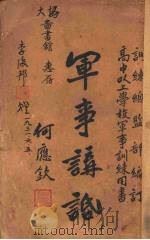 訓練總監部編訂
高中以上學校軍事訓練用書
軍事講話
何應欽
協大圖書館 惠存
李淑邦 贈 一九三一、六、五